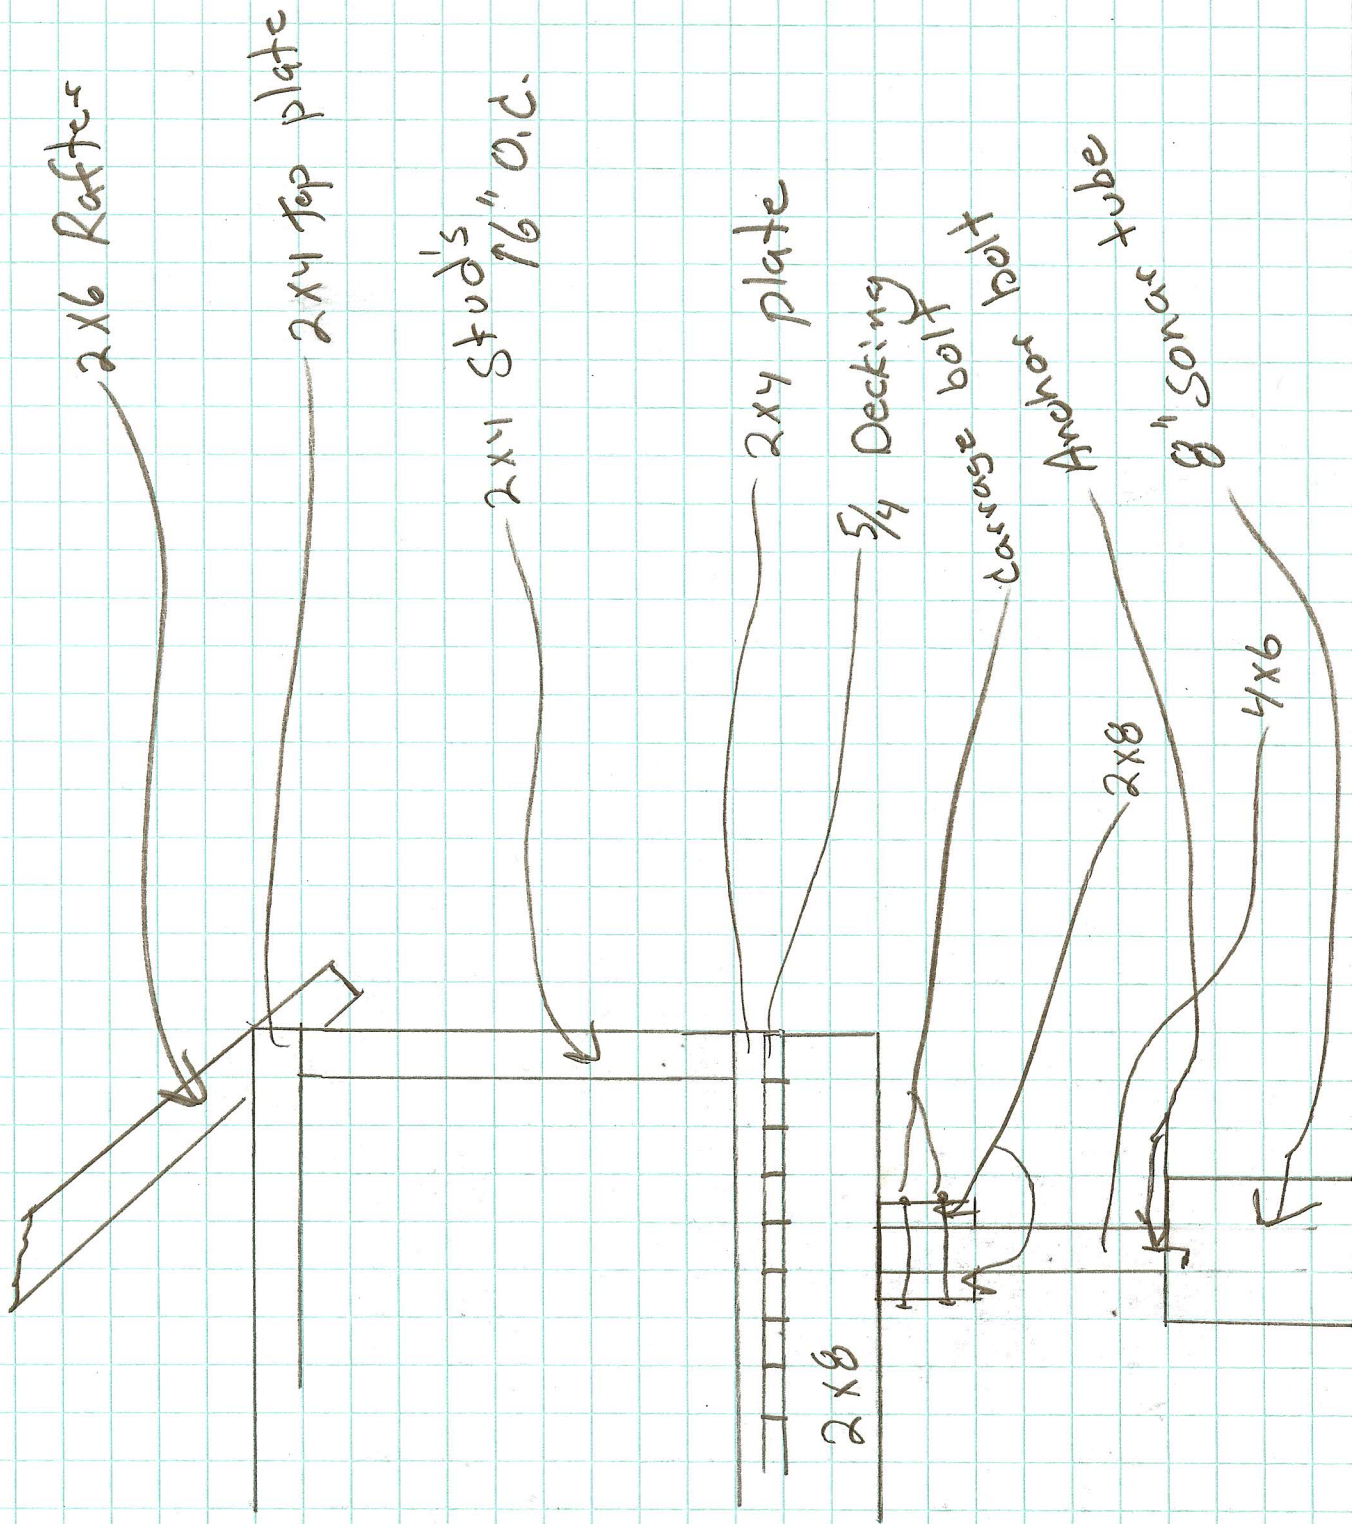 2x6 Rafter
2x4 Top plate
2x4 Stud's
16" O.C.
2x4 plate
5/4 Decking
Carrage bolt
Anchor bolt
8" Sonar tube
2x8
4x6
2x8